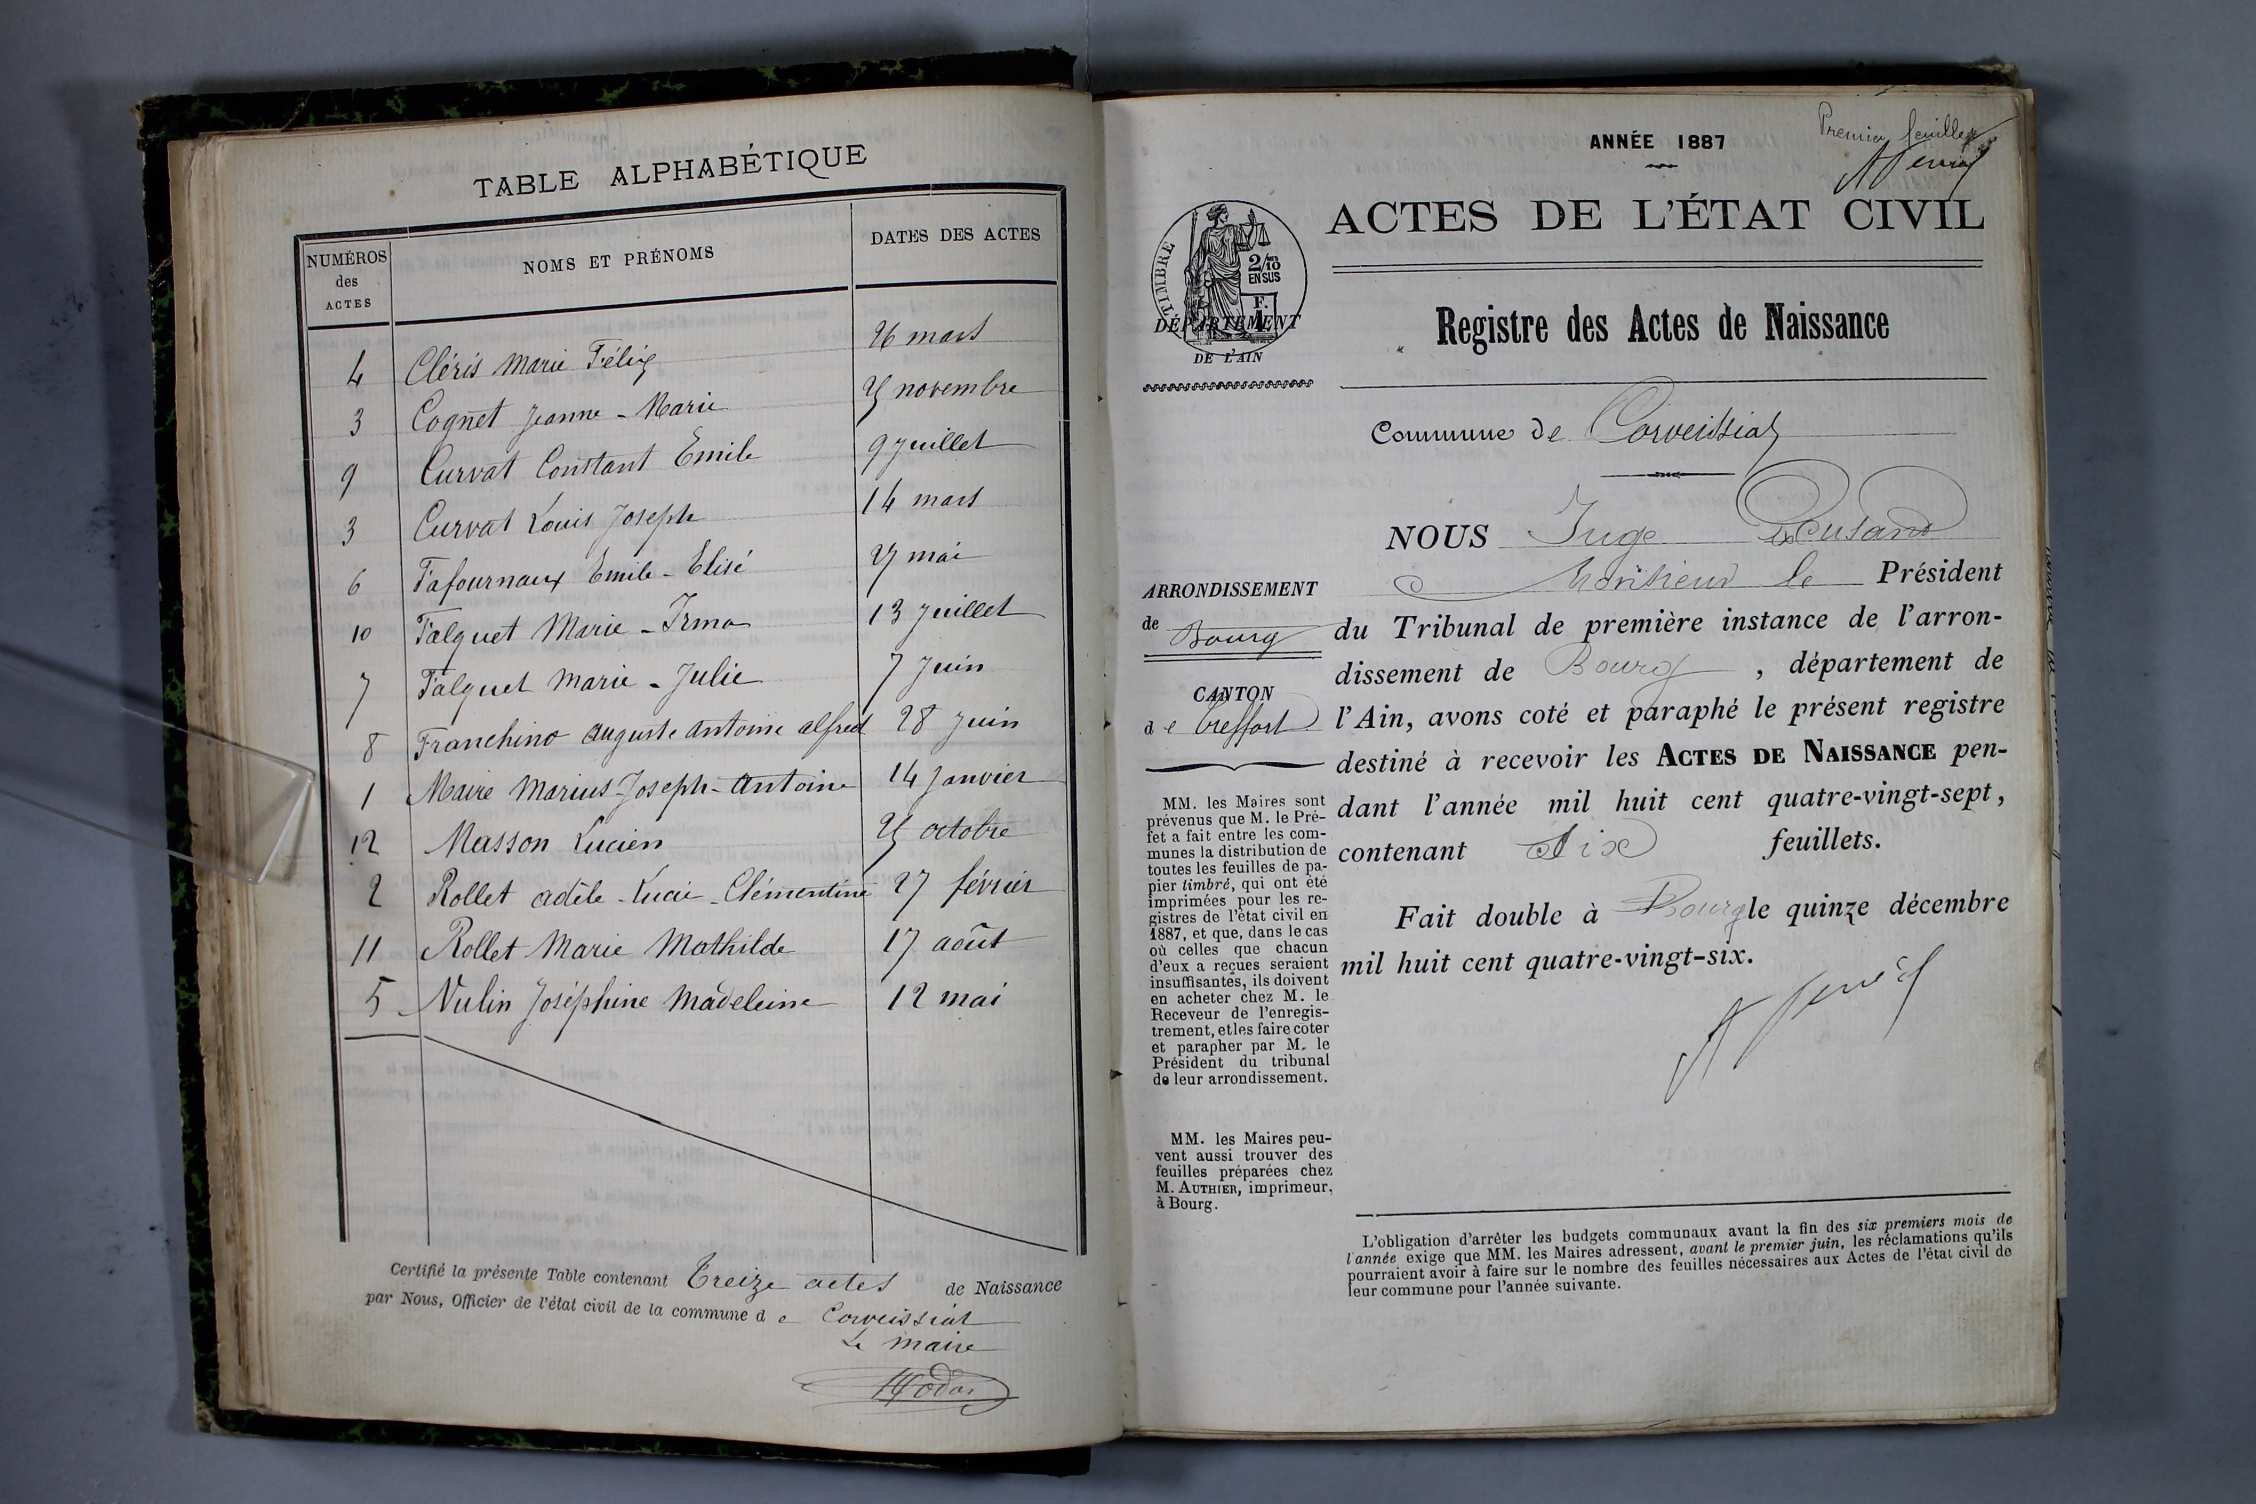 TABLE ALPHABÉTIQUE
NUMÉROS des ACTES
NOMS ET PRÉNOMS
DATES DES ACTES
4 Cléris Marie Félix 26 mars
3 Cognet Jeanne-Marie novembre
9 Curvat Constant Emile 9 juillet
3 Curvat Louis Joseph 14 mars
6 Fafournoux Emile-Elisé mai
10 Falquet Marie-Irma 13 juillet
7 Falquet Marie-Julie 7 juin
8 Franchino auguste antoine alfred 28 juin
1 Maire Marius-Joseph-antoine 14 janvier
12 Masson Lucien octobre
2 Rollet adèle-Lucie-Clémentine 27 février
11 Rollet Marie Mathilde 17 août
5 Vulin Joséphine Madeleine 12 mai
Certifié la présente Table contenant Treize actes de Naissance
par Nous, Officier de l'état civil de la commune d e Corveissiat
Le maire
Premier feuillet
ANNÉE 1887
ACTES DE L'ÉTAT CIVIL
TIMBRE
2/10 EN SUS
F. 1
DÉPARTEMENT
DE L'AIN
Registre des Actes de Naissance
Commune de Corveissiat
ARRONDISSEMENT
de Bourg
CANTON
d e Treffort
MM. les Maires sont
prévenus que M. le Pré-
fet a fait entre les com-
munes la distribution de
toutes les feuilles de pa-
pier timbré, qui ont été
imprimées pour les re-
gistres de l'état civil en
1887, et que, dans le cas
où celles que chacun
d'eux a reçues seraient
insuffisantes, ils doivent
en acheter chez M. le
Receveur de l'enregis-
trement, et les faire coter
et parapher par M. le
Président du tribunal
de leur arrondissement.
MM. les Maires peu-
vent aussi trouver des
feuilles préparées chez
M. AUTHIER, imprimeur,
à Bourg.
NOUS Juge
Monsieur le Président
du Tribunal de première instance de l'arron-
dissement de Bourg, département de
l'Ain, avons coté et paraphé le présent registre
destiné à recevoir les ACTES DE NAISSANCE pen-
dant l'année mil huit cent quatre-vingt-sept,
contenant Six feuillets.
Fait double à Bourg le quinze décembre
mil huit cent quatre-vingt-six.
L'obligation d'arrêter les budgets communaux avant la fin des six premiers mois de
l'année exige que MM. les Maires adressent, avant le premier juin, les réclamations qu'ils
pourraient avoir à faire sur le nombre des feuilles nécessaires aux Actes de l'état civil de
leur commune pour l'année suivante.